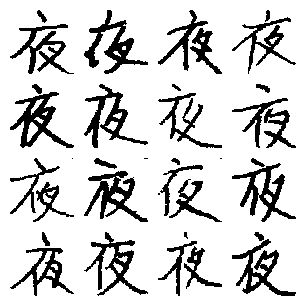 夜夜夜夜
夜夜夜夜
夜夜夜夜
夜夜夜夜